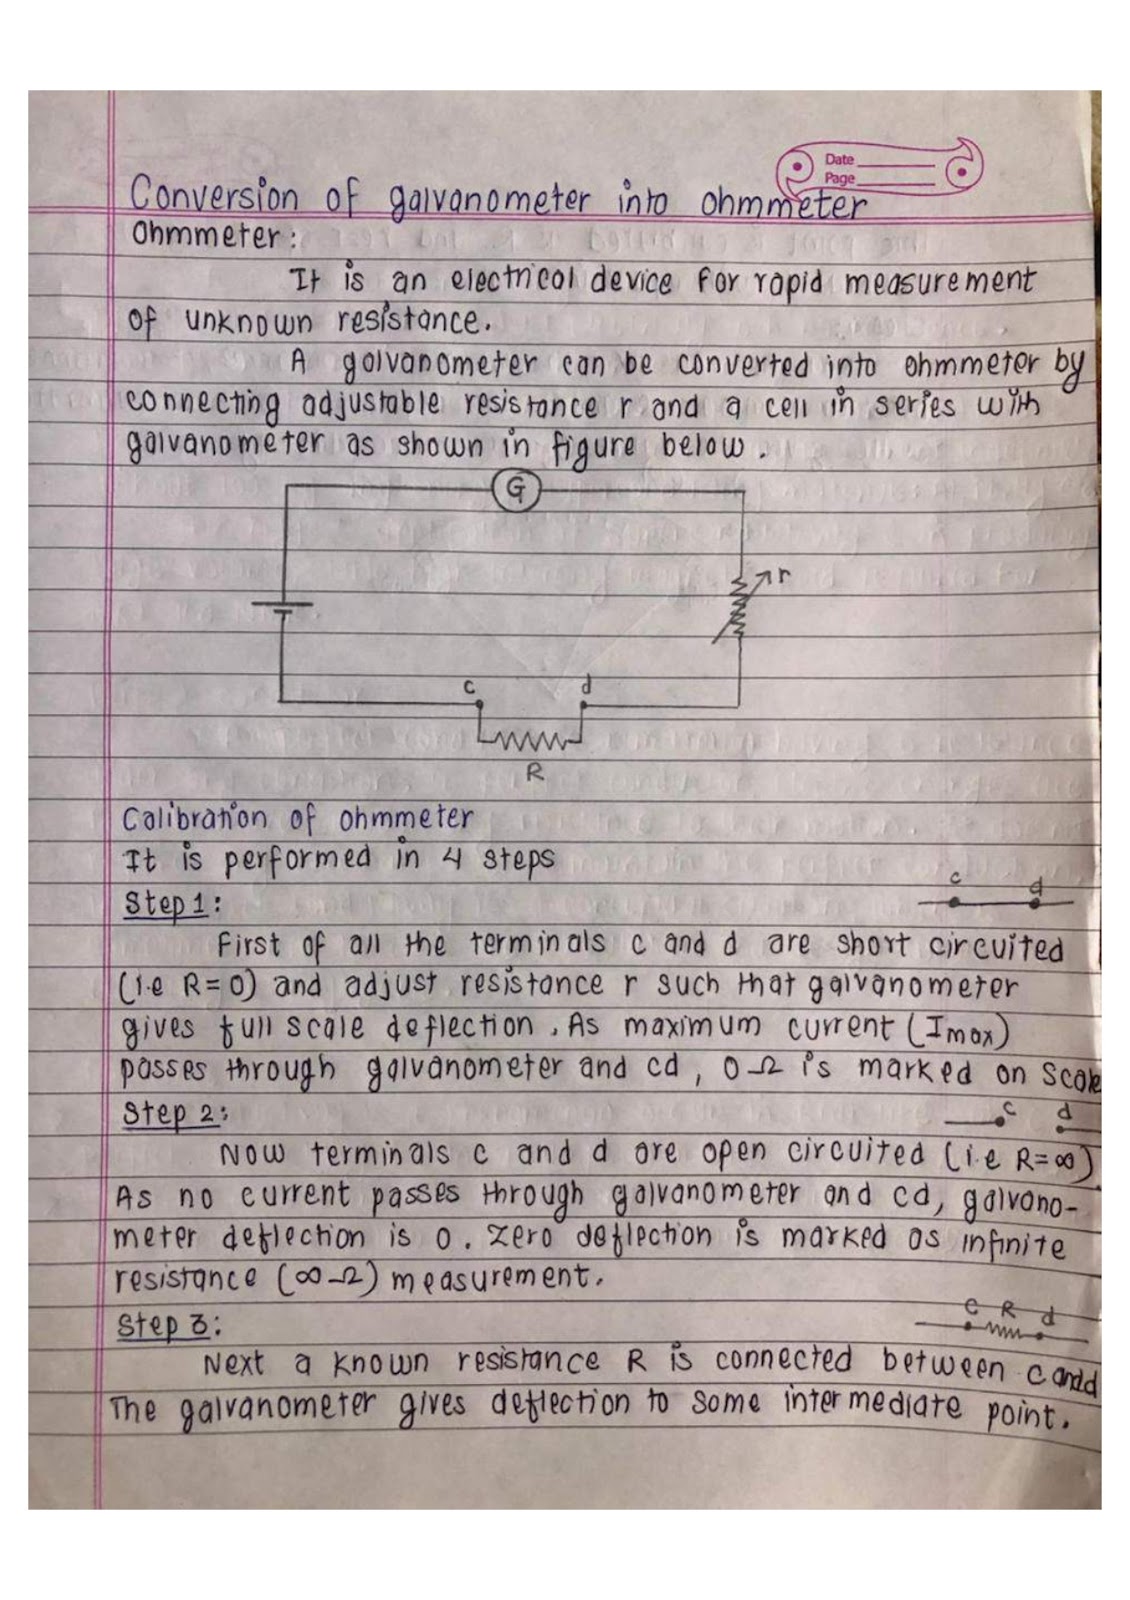 Date
Page
Conversion of galvanometer into ohmmeter
Ohmmeter:
It is an electrical device for rapid measurement
of unknown resistance.
A galvanometer can be converted into ohmmeter by
connecting adjustable resistance r and a cell in series with
galvanometer as shown in figure below.
G
r
c d
R
Calibration of ohmmeter
It is performed in 4 steps
c d
Step 1:
First of all the terminals c and d are short circuited
(i.e R=0) and adjust resistance r such that galvanometer
gives full scale deflection. As maximum current (Imax)
passes through galvanometer and cd, 0Ω is marked on scale
Step 2: c d
Now terminals c and d are open circuited (i.e R=∞)
As no current passes through galvanometer and cd, galvano-
meter deflection is 0. Zero deflection is marked as infinite
resistance (∞Ω) measurement.
c R d
Step 3:
Next a known resistance R is connected between c and d
The galvanometer gives deflection to some intermediate point.